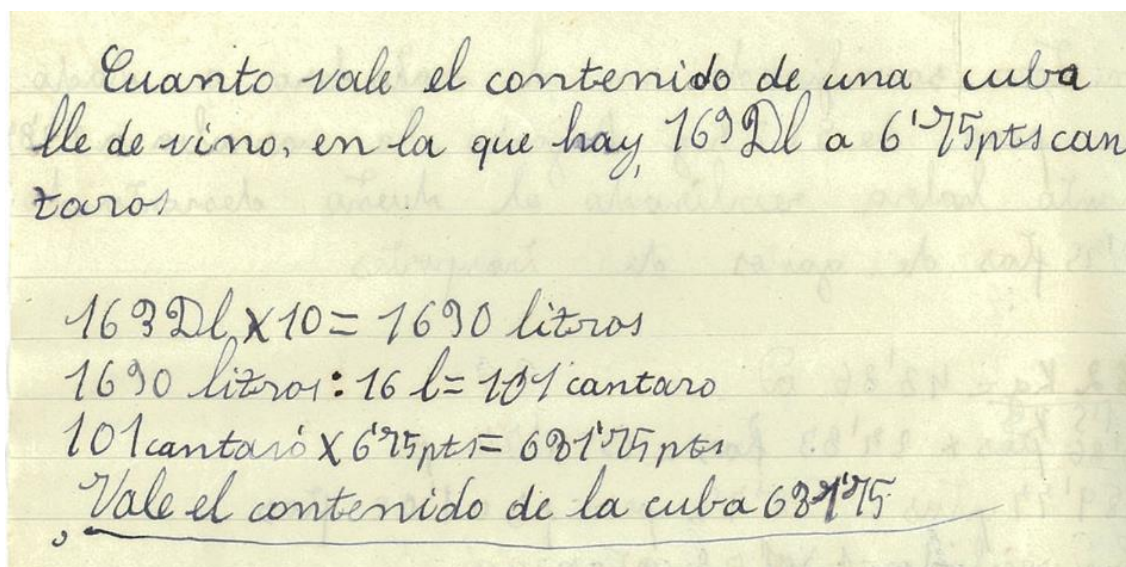 Cuanto vale el contenido de una cuba
lle de vino, en la que hay, 163 Dl a 6'75 pts can
taros
163 Dl x 10 = 1630 litros
1630 litros : 16 l = 101 cantaro
101 cantaro x 6'75 pts = 681'75 pts
Vale el contenido de la cuba 681'75